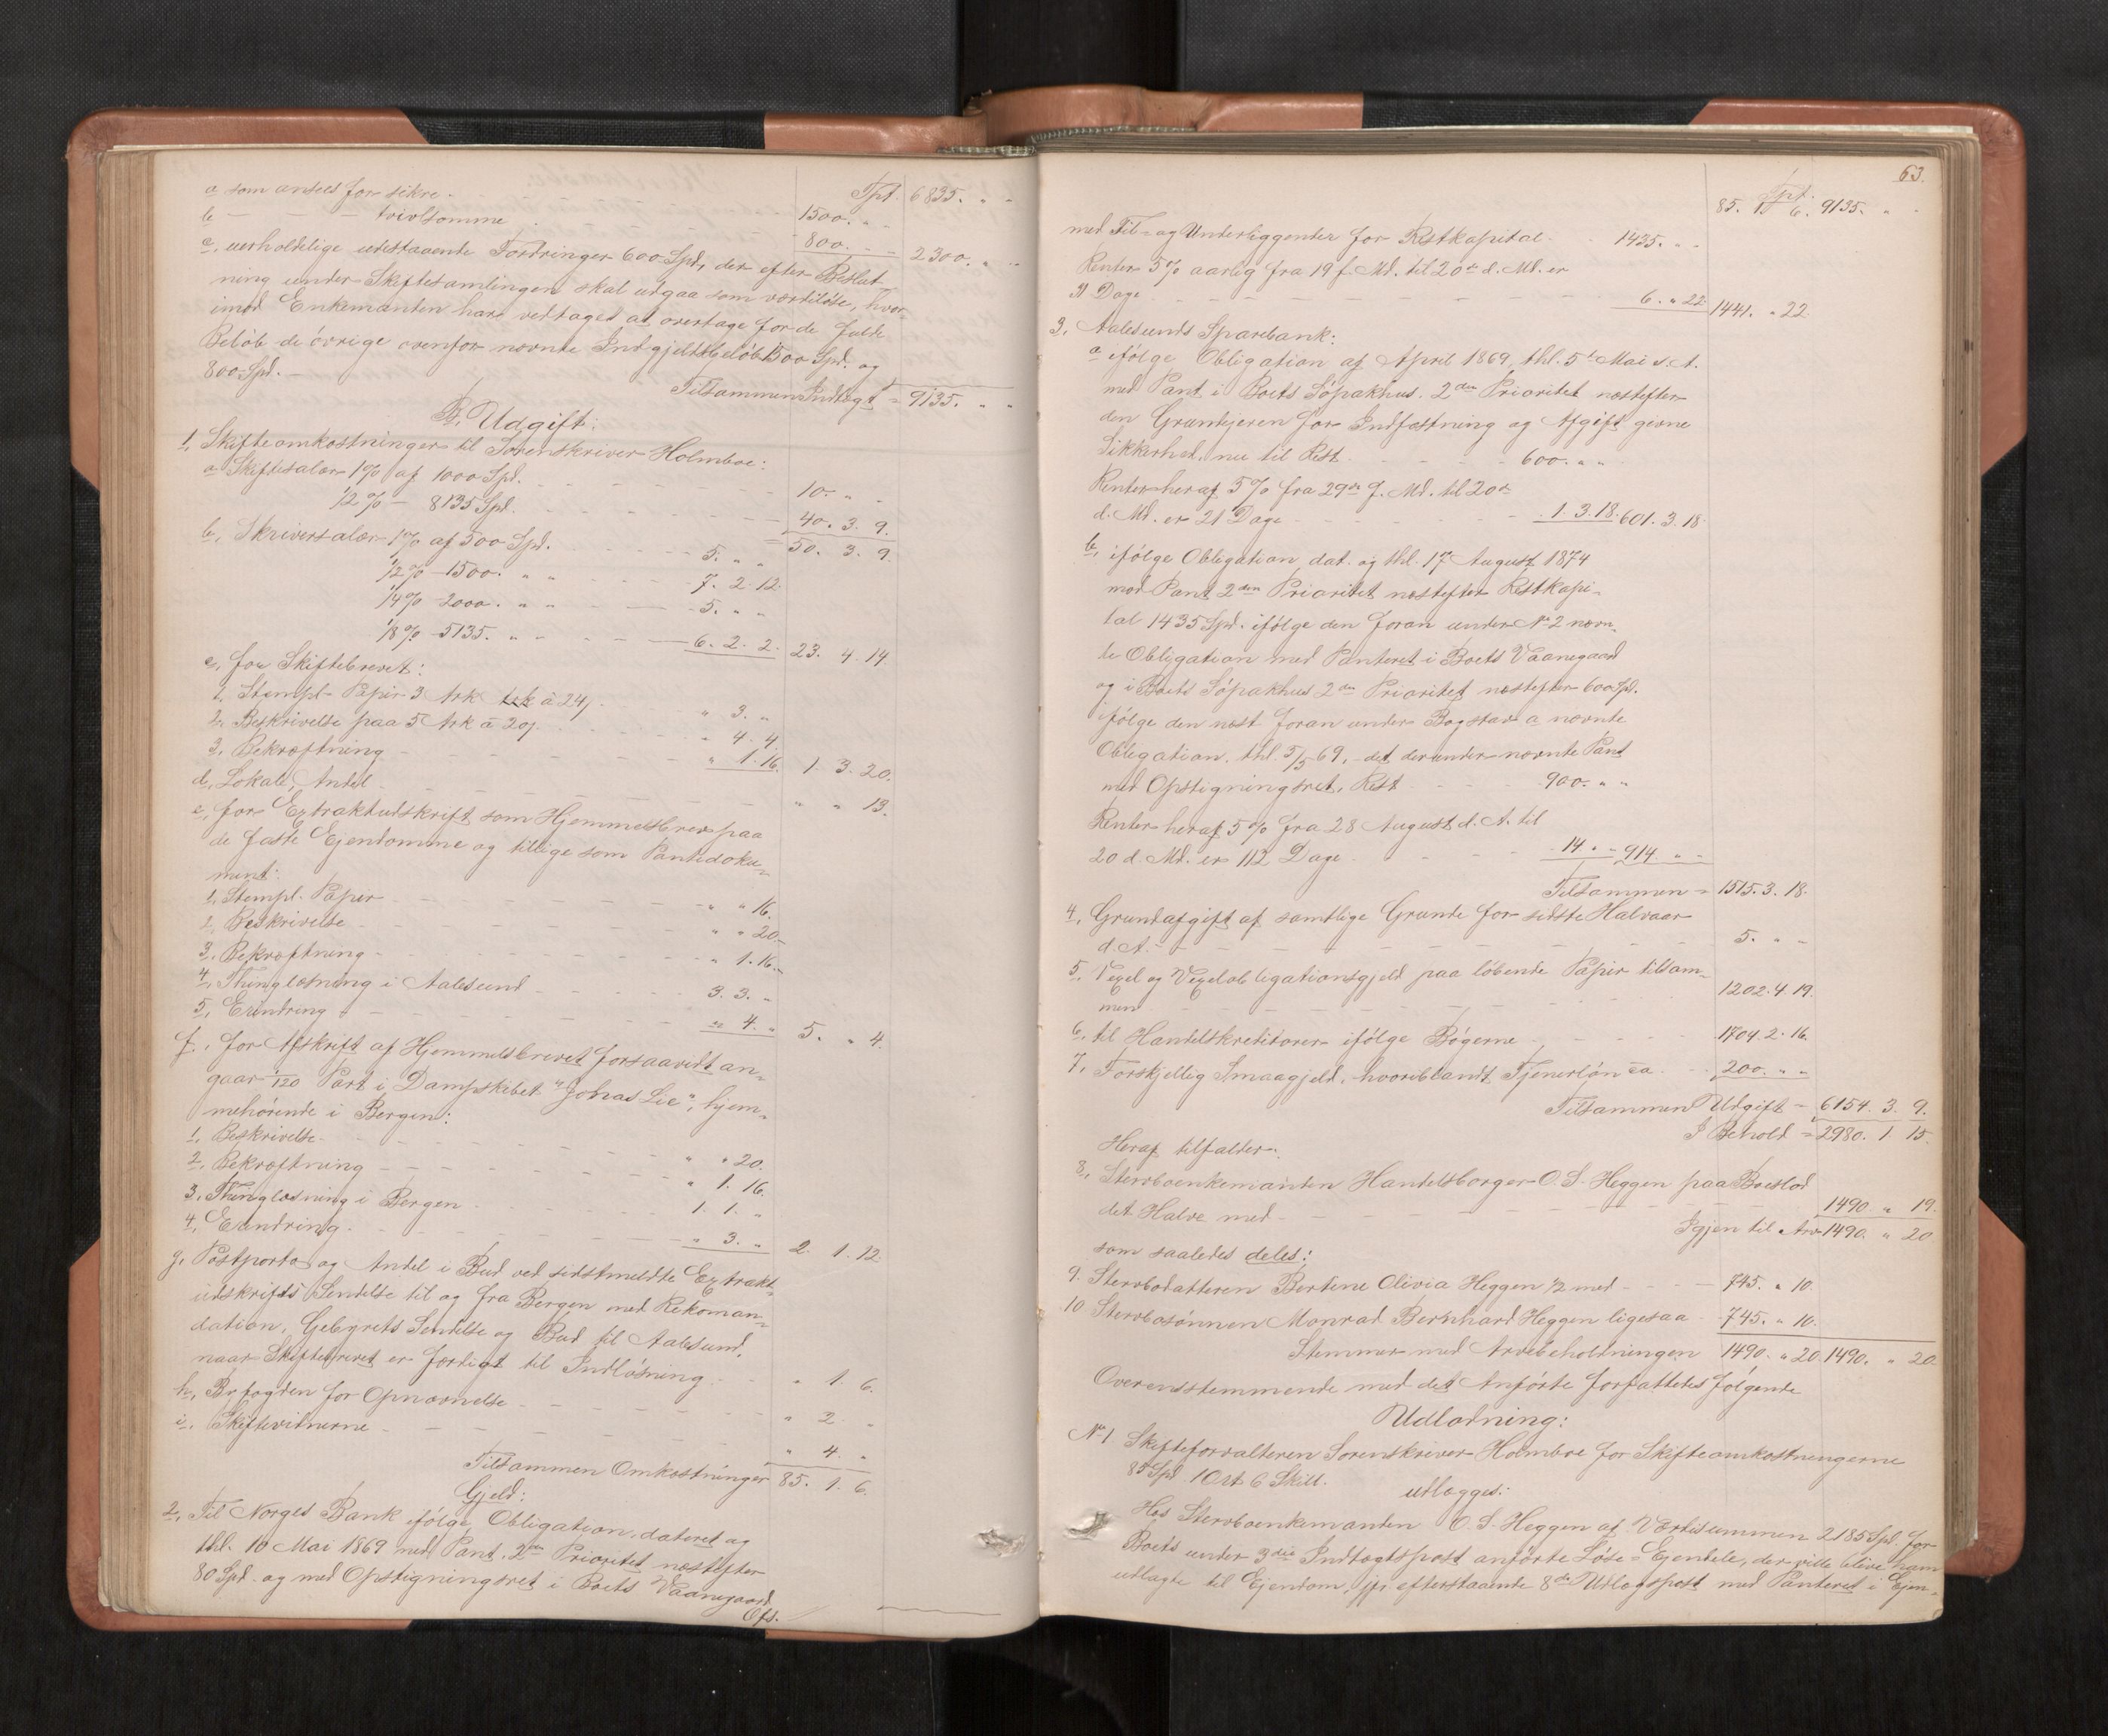 Spd. 6835. " "
a som ansees for sikre.
b — — — tvivlsomme 1500. " "
c, uerholdelige udestaaende Fordringer 600 Spd, der efter Beslut- 800. " " 2300. " "
ning under Skiftesamlingen skal udgaa som værdiløse, hvor-
imod Enkemanden have vedtaget at overtage for de fulde
Beløb de øvrige ovenfor nævnte Indgjeldsbeløb 1500 Spd. og
800 Spd. —
Tilsammen Indtægt = 9135. " "
B, Udgift:
1, Skifteomkostninger til Sorenskriver Holmboe:
a Skiftesalær 1% af 1000 Spd. 10. " "
1/2 % — 8135 Spd. 40. 3. 9.
50. 3. 9.
b, Skriversalær 1% af 500 Spd. 5. " "
1/2 % — 1500. " " 7. 2. 12.
1/4 % — 2000. " " 5. " "
1/8 % — 5135. " " 6. 2. 2. 23. 4. 14.
c, for Skiftebrevet:
1, Stempl. Papir 3 Ark à 24 " 3. "
2, Beskrivelse paa 5 Ark à 20 " 4. 4.
3, Bekræftning " 1. 16. 1. 3. 20.
d, Lokale, Andel " " 13.
e, for Extraktudskrift som Hjemmelsbrev paa
de faste Ejendomme og tillige som Pantedoku-
ment:
1, Stempl. Papir " " 16.
2, Beskrivelse " " 20.
3, Bekræftning " 1. 16.
4, Thinglæsning i Aalesund 3. 3. "
5, Erindring " 4. " 5. " 4.
f, for Afskrift af Hjemmelsbrevet forsaavidt an-
gaar 1/120 Part i Dampskibet "Jonas Lie", hjem-
mehørende i Bergen:
1, Beskrivelse " " 20.
2, Bekræftning " 1. 16.
3, Thinglæsning i Bergen 1. 1. "
4, Erindring " 3. " 2. 1. 12.
g, Postporto og Andel i Bud ved sidstmeldte Extrakt-
udskrifts Sendelse til og fra Bergen med Rekoman-
dation, Gebyrets Sendelse og Bud til Aalesund,
naar Skiftebrevet er færdigt til Indløsning " 1. 6.
h, Byfogden for Opnævnelse " 2. "
i, Skiftevidnerne " 4. "
Tilsammen Omkostninger 85. 1. 6.
Gjeld:
2, Til Norges Bank ifølge Obligation, dateret og
thl. 10 Mai 1869 med Pant, 2den Prioritet næstefter
80 Spd. og med Opstigningsret i Boets Vaanegaard
Ofs.
63.
Spd.
85. 1. 6. 9135. " "
med Til- og Underliggender for Restkapital 1435. " "
Renter 5% aarlig fra 19 f. Md. til 20de d. Md. er
31 Dage 6. " 22. 1441. " 22.
3, Aalesunds Sparebank:
a ifølge Obligation af April 1869, thl. 5te Mai s. A.
med Pant i Boets Søpakhus, 2den Prioritet næstefter
den Grundejeren for Indfæstning og Afgift givne
Sikkerhed, nu til Rest 600. " "
Renter heraf 5% fra 29de f. Md. til 20de
d. Md. er 21 Dage 1. 3. 18. 601. 3. 18.
b, ifølge Obligation dat. og thl. 17 August 1874
med Pant 2den Prioritet næstefter Restkapi-
tal 1435 Spd. ifølge den foran under No 2 nævn-
te Obligation med Panteret i Boets Vaanegaard
og i Boets Søpakhus 2den Prioritet næstefter 600 Spd.
ifølge den næst foran under Bogstav a nævnte
Obligation, thl. 5/5 69, det derunder nævnte Pant
med Opstigningsret, Rest 900. " "
Renter heraf 5% fra 28 August d. A. til
20 d. Md. er 112 Dage 14. " " 914. " "
Tilsammen = 1515. 3. 18.
4, Grundafgift af samtlige Grunde for sidste Halvaar
d. A. 5. " "
5, Vexel og Vexelobligationsgjeld paa løbende Papir tilsam-
men 1202. 4. 19.
6, til Handelskreditorer ifølge Bøgerne 1704. 2. 16.
7, Forskjellig Smaagjeld, hvoriblandt Tjenerløn ca 200. " "
Tilsammen Udgift = 6154. 3. 9.
I Behold = 2980. 1. 15.
Heraf tilfalder:
8, Stervboenkemanden Handelsborger O. S. Heggen paa Boeslod
det Halve med 1490. " 19.
Igjen til Arv 1490. " 20
som saaledes deles:
9. Stervbodatteren Bertine Olivia Heggen 1/2 med 745. " 10.
10 Stervbosønnen Monrad Bernhard Heggen ligesaa 745. " 10.
Stemmer med Arvebeholdningen 1490. " 20. 1490. " 20
Overensstemmende med det Anførte forfattedes følgende
Udlodning:
No 1. Skifteforvalteren Sorenskriver Holmboe for Skifteomkostningerne
85 Spd 1 Ort 6 Skill.
udlægges:
Hos Stervboenkemanden O. S. Heggen af Værdisummen 2185 Spd. for
Boets under 3die Indtægtspost anførte Løse-Ejendele, der ville blive ham
udlagte til Ejendom, jfr efterstaaende 8de Udlægspost med Panteret i Ejen-